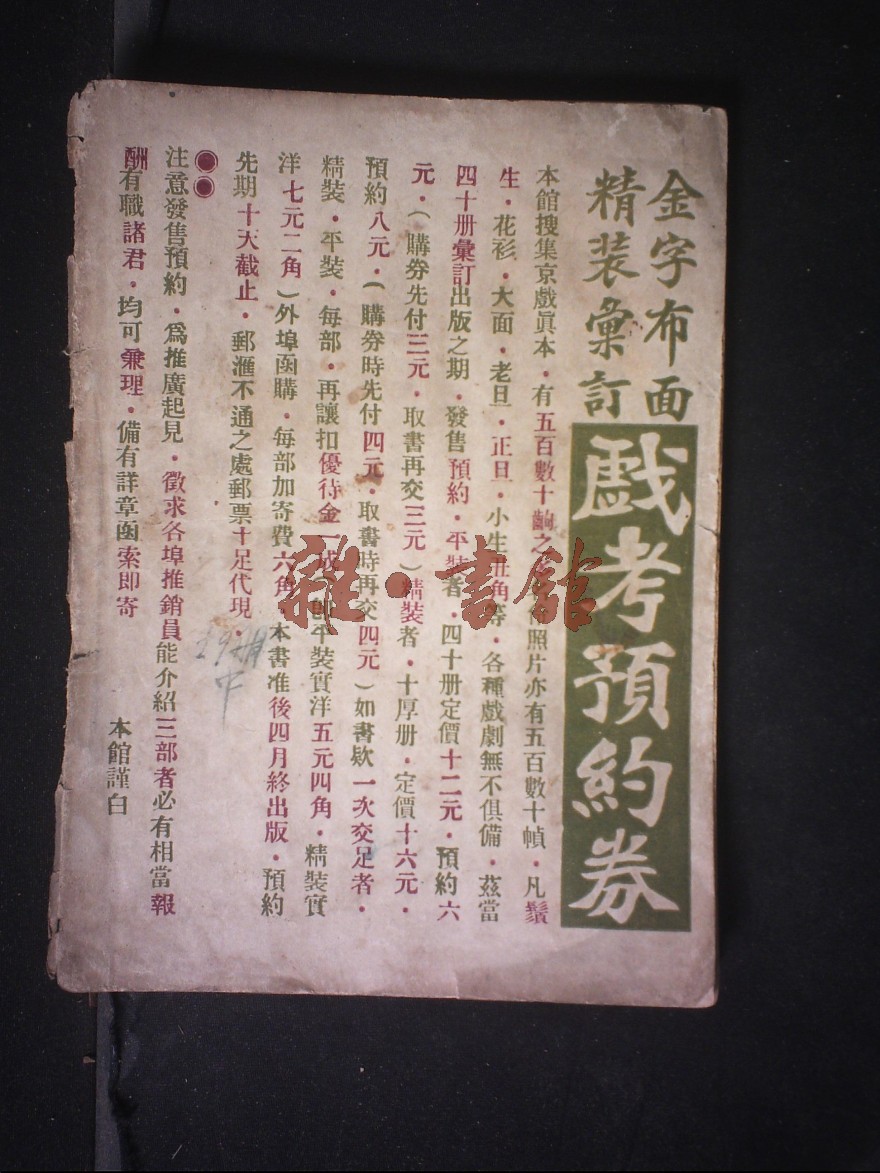 金字布面
精装彙訂
戲考預約券
本館搜集京戲眞本・有五百數十齣之 照片亦有五百數十幀・凡鬚
生・花衫・大面・老旦・正旦・小生丑角等・各種戲劇無不俱備・茲當
四十册彙訂出版之期・發售預約・平裝者・四十册定價十二元・預約六
元・（購券先付三元・取書再交三元）精裝者・十厚册・定價十六元・
預約八元・（購券時先付四元・取書時再交四元）如書欵一次交足者・
精裝・平裝・每部・再讓扣優待金一成 平裝實洋五元四角・精裝實
洋七元二角）外埠函購・每部加寄費六角・本書准後四月終出版・預約
先期十天截止・郵滙不通之處郵票十足代現・
◉◉
注意發售預約・爲推廣起見・徵求各埠推銷員能介紹三部者必有相當報
酬有職諸君・均可兼理・備有詳章函索即寄
本館謹白
雜・書館